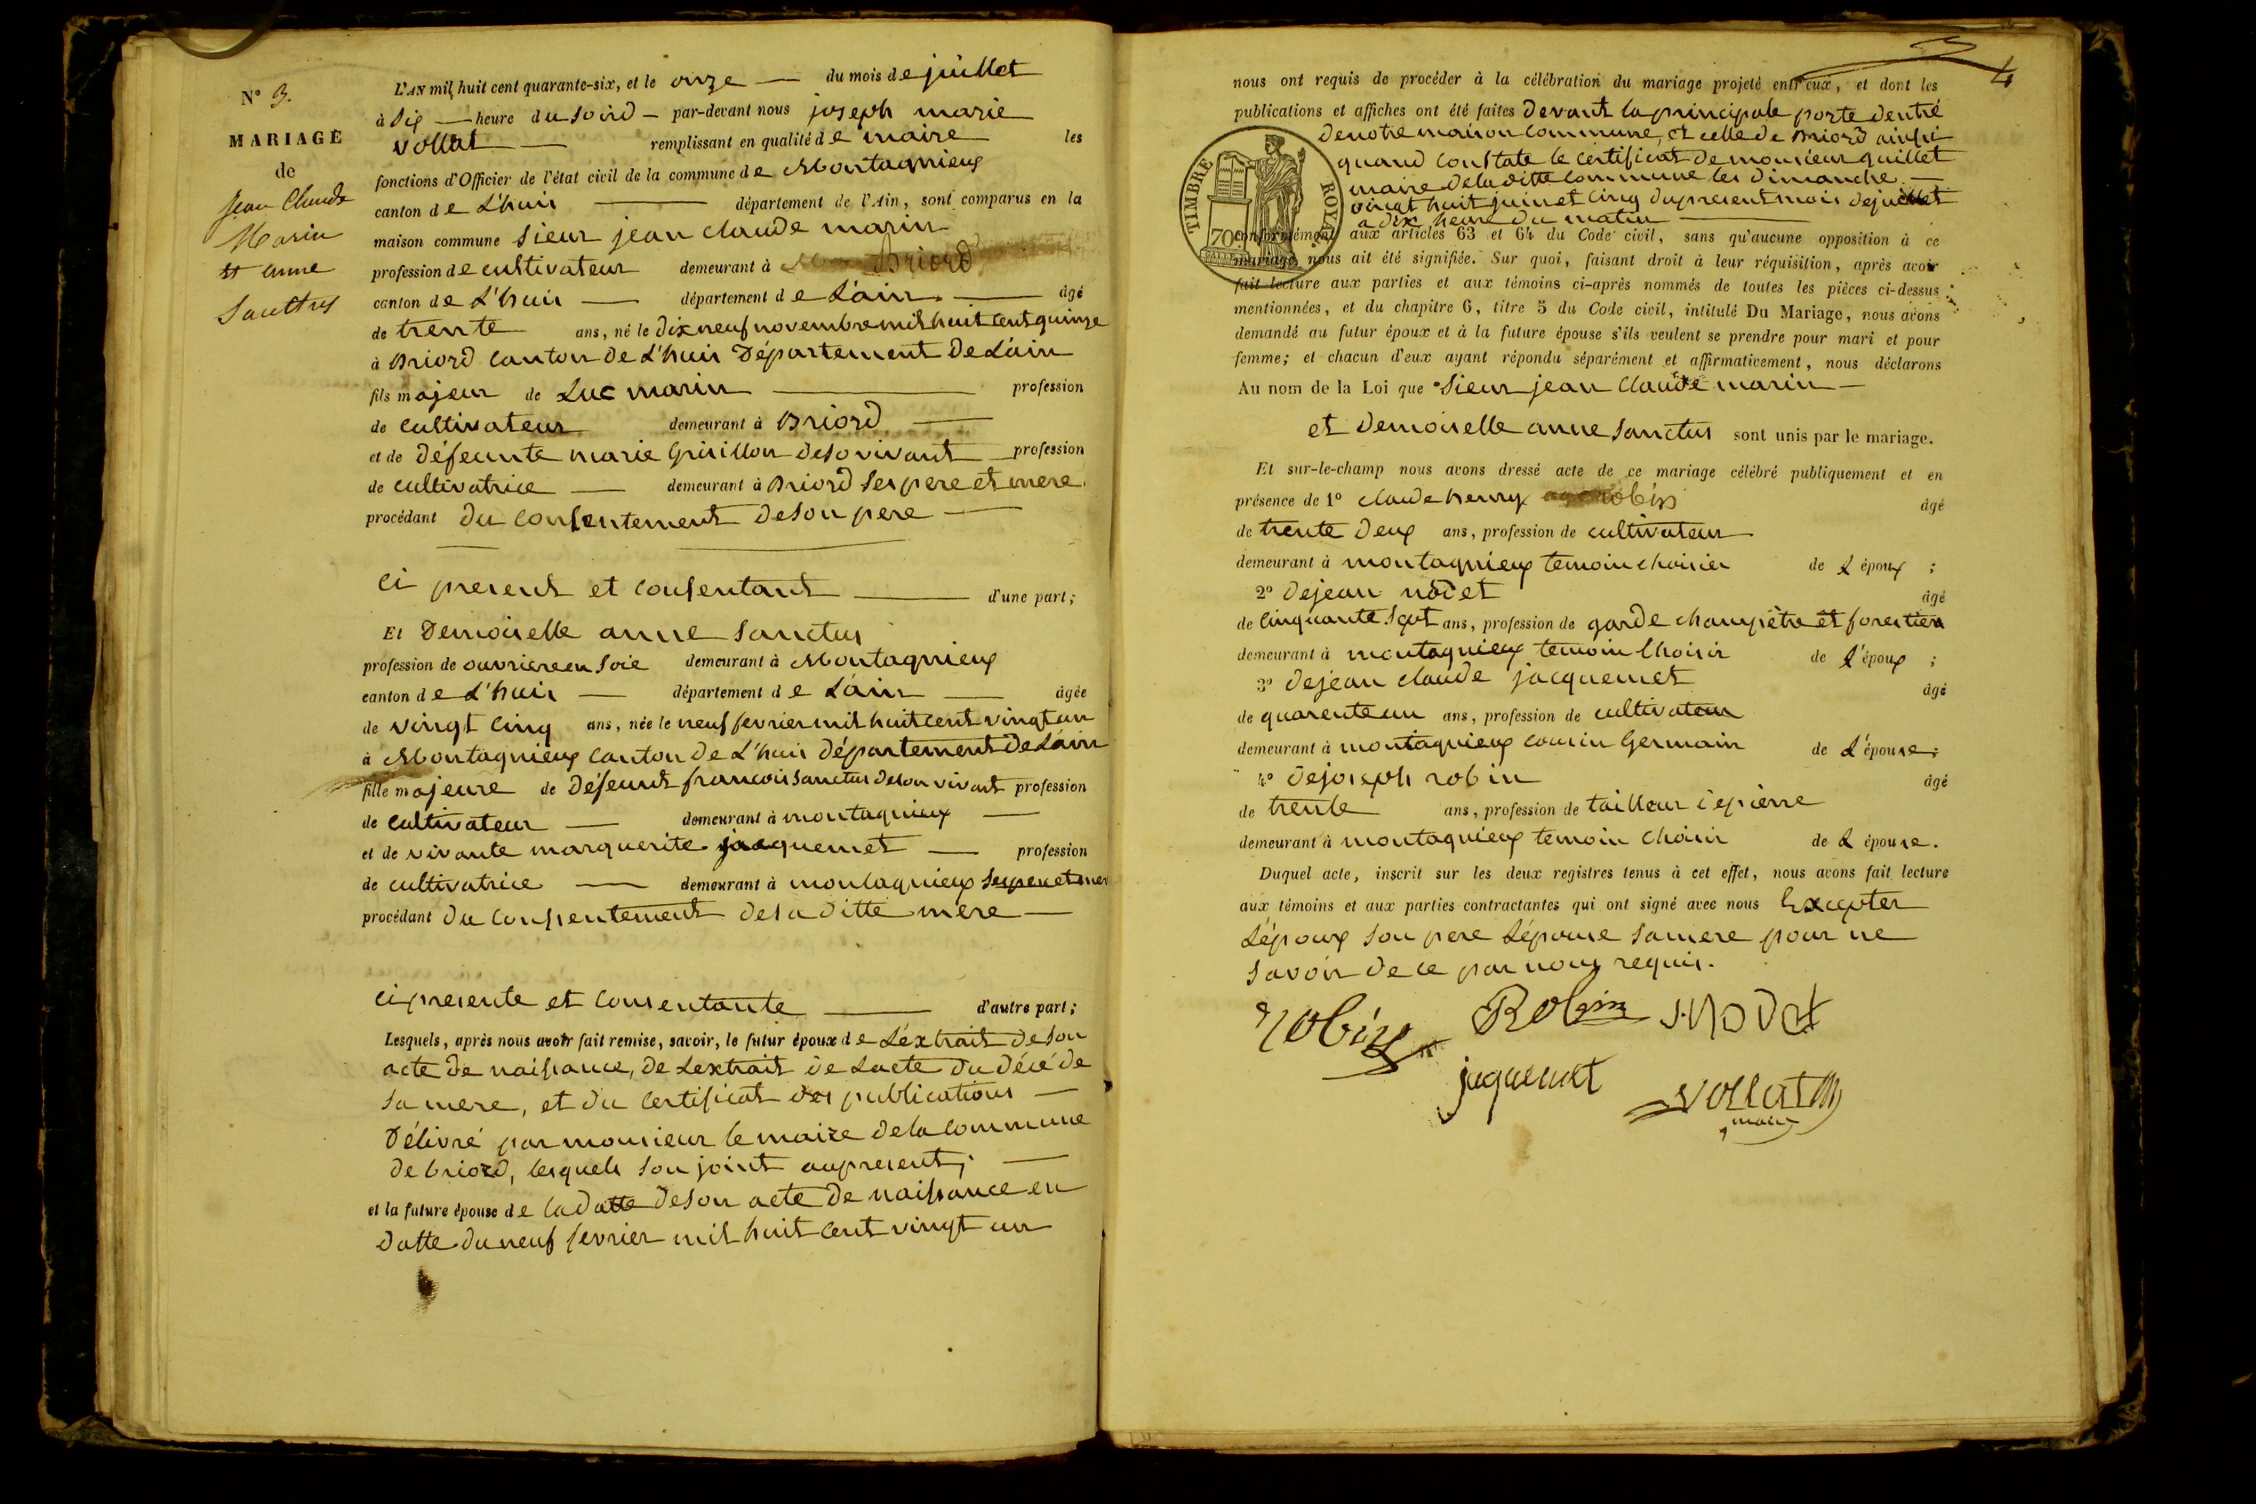 N° 3.
MARIAGE
de
Jean Claude
Marin
et anne
Sanctus
L'AN mil huit cent quarante-six, et le onze — du mois de juillet
à six — heure du soird — par-devant nous joseph marie
vollat — remplissant en qualité de maire les
fonctions d'Officier de l'état civil de la commune de Montagnieux
canton de L'huis — département de l'Ain, sont comparus en la
maison commune Sieur jean claude marin
profession de cultivateur demeurant à Briord
canton de L'huis — département de L'ain — âgé
de trente ans, né le dix neuf novembre mil huit cent quinze
à Briord canton de L'huis Département de L'ain
fils majeur de Luc marin — profession
de cultivateur demeurant à Briord —
et de défeunte marie Grisillon deso vivant — profession
de cultivatrice — demeurant à Briord ses pere et mere.
procédant du consentement de son pere —
ci present et consentant — d'une part;
Et Demoiselle anne Sanctus
profession de ouvriere en soie demeurant à Montagnieux
canton de L'huis — département de L'ain — âgée
de vingt cinq ans, née le neuf fevrier mil huit cent vingt un
à Montagnieux canton de L'huis département De L'ain
fille majeure de Défeunt francois Sanctus de son vivant profession
de cultivateur — demeurant à montagnieux —
et de vivante marguerite jacquemet — profession
de cultivatrice — demeurant à montagnieux ses pere et mer
procédant du consentement de sa ditte mere —
ci presente et consentante — d'autre part;
Lesquels, après nous avoir fait remise, savoir, le futur époux de L'éxtrait de son
acte de naissance, de Lextrait de Lacte du décé de
sa mere, et du certificat des publications —
Délivré par monsieur le maire de la commune
de briord, lesquels son joint au present; —
et la future épouse de la datte de son acte de naissance en
datte du neuf fevrier mil huit cent vingt un
4
nous ont requis de procéder à la célébration du mariage projeté entr'eux, et dont les
publications et affiches ont été faites devant la principale porte dentré
de notre maison commune, et celle de Briord ainssi
quand constate le certificat de monsieur quillet
maire de la ditte commune les dimanche —
vingt huit juin et cinq du present mois de juillet
a dix heure du matin —
TIMBRE ROYAL
70 c.
conformément aux articles 63 et 64 du Code civil, sans qu'aucune opposition à ce
mariage nous ait été signifiée. Sur quoi, faisant droit à leur réquisition, après avoir
fait lecture aux parties et aux témoins ci-après nommés de toutes les pièces ci-dessus
mentionnées, et du chapitre 6, titre 5 du Code civil, intitulé Du Mariage, nous avons
demandé au futur époux et à la future épouse s'ils veulent se prendre pour mari et pour
femme; et chacun d'eux ayant répondu séparément et affirmativement, nous déclarons
Au nom de la Loi que Sieur jean Claude marin —
et Demoiselle anne Sanctus sont unis par le mariage.
Et sur-le-champ nous avons dressé acte de ce mariage célébré publiquement et en
présence de 1° claude henry robin âgé
de trente deux ans, profession de cultivateur
demeurant à montagnieux temoin choisier de L époux ;
2° de jean nodet âgé
de cinquante sept ans, profession de garde champêtre et forestier
demeurant à montagnieux temoin Choisir de L'époux ;
3° de jean claude jacquemet âgé
de quarente un ans, profession de cultivateur
demeurant à montagnieux cousin Germain de L'épouse;
4° de joseph robin âgé
de trente ans, profession de tailleur de pierre
demeurant à montagnieux temoin choisir de L épouse.
Duquel acte, inscrit sur les deux registres tenus à cet effet, nous avons fait lecture
aux témoins et aux parties contractantes qui ont signé avec nous Excepter
L'époux son pere L'épouse sa mere pour ne
savoir de ce par nous requis.
robin Robin J. NODET
jaquemet VOLLAT m
maire